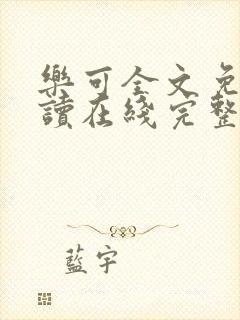 樂可全文免
讀在綫完整
藍宇